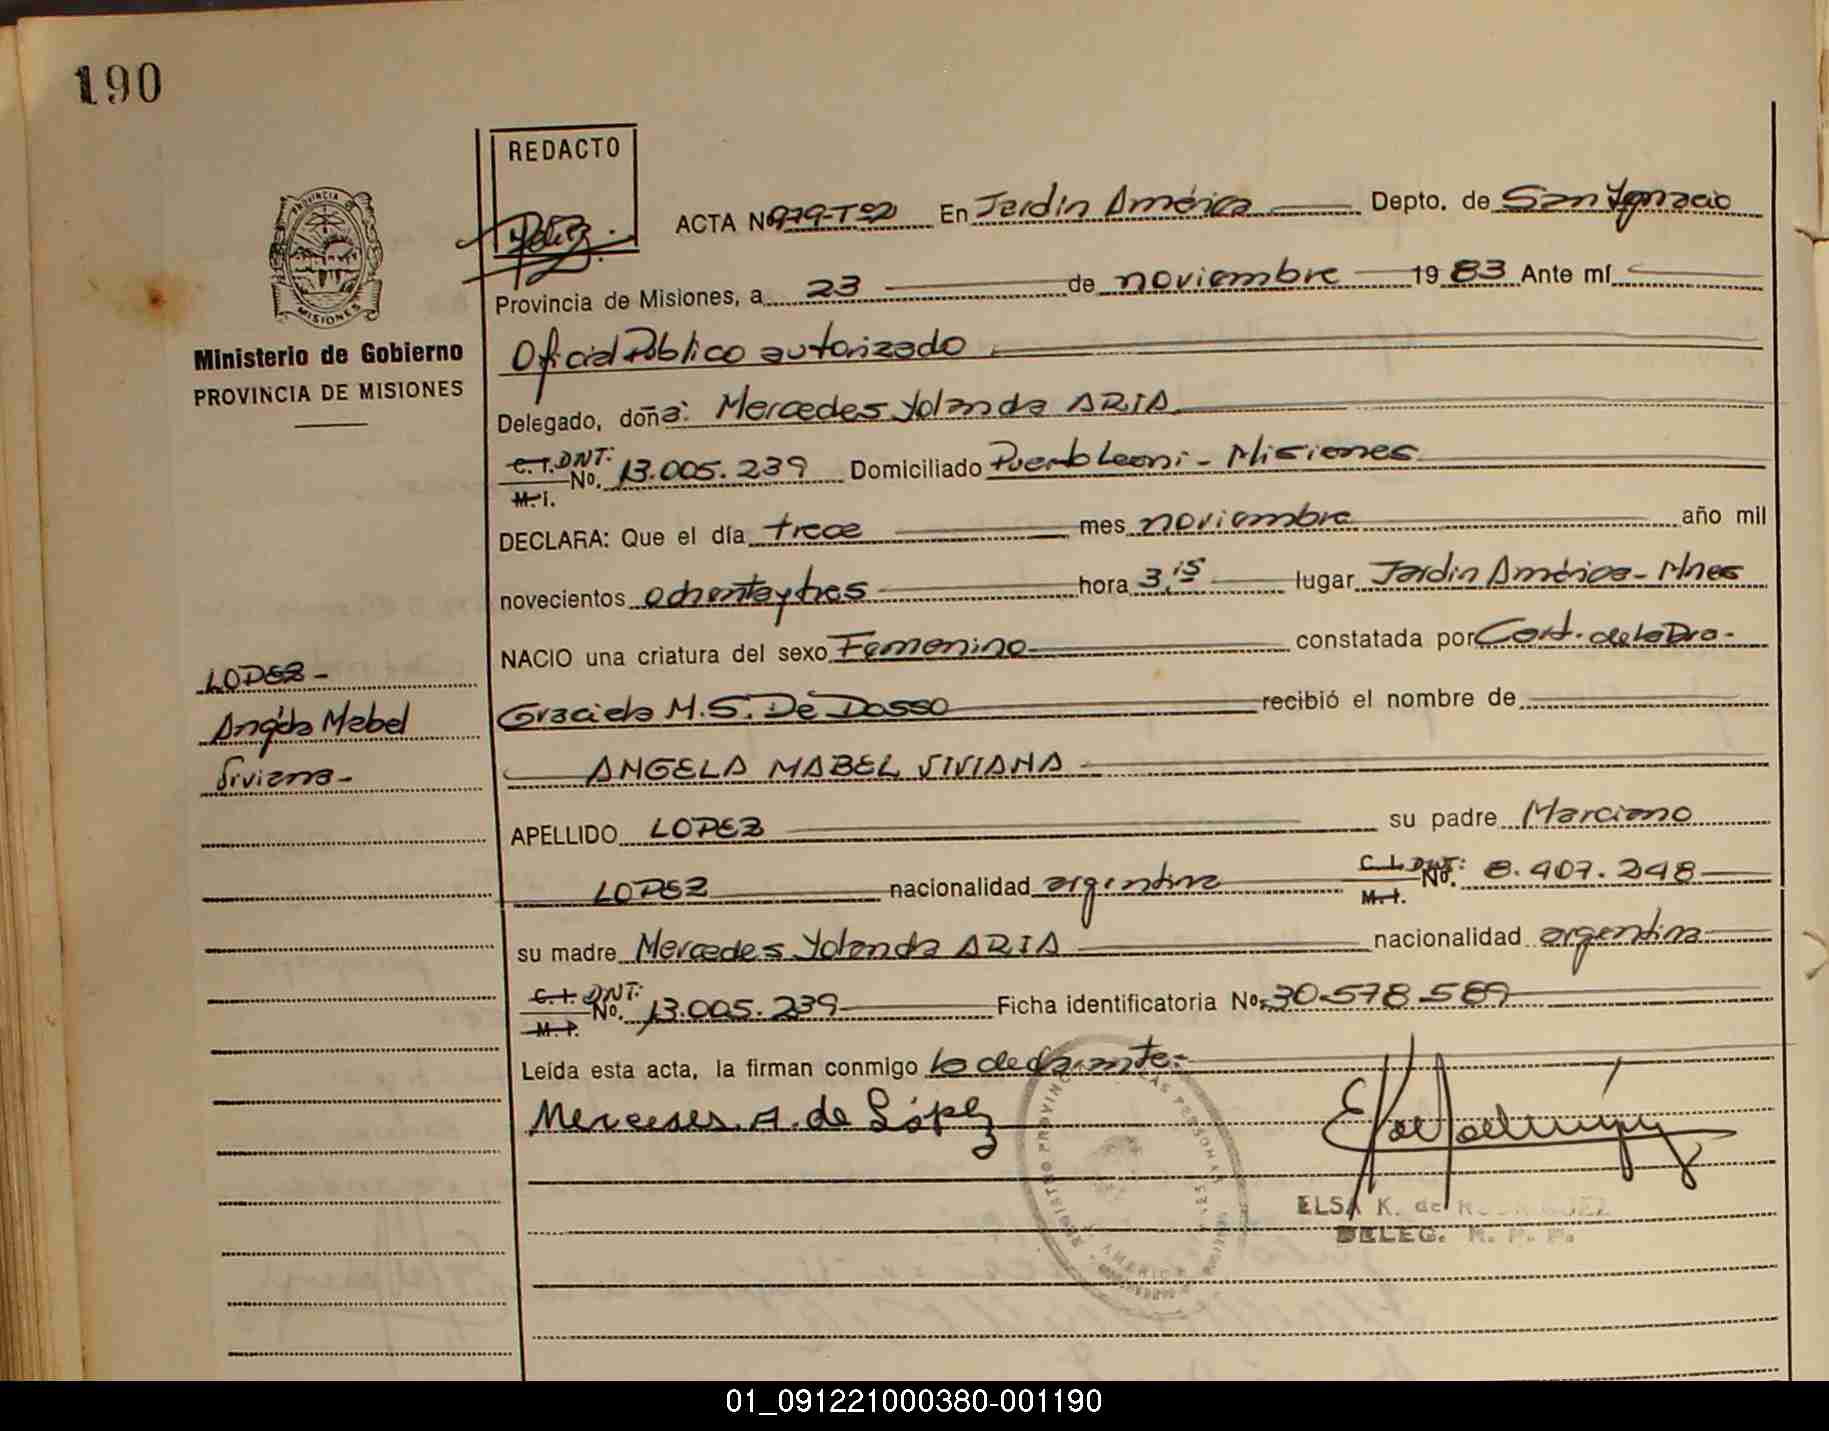 190
REDACTO
ACTA Nº 979-Tº2 En Jardin América Depto. de San Ignacio
Provincia de Misiones, a 23 de noviembre 1983 Ante mí
Oficial Público autorizado
Delegado, doña: Mercedes Yolanda ARIA
C.I. DNI: M.I. No. 13.005.239 Domiciliado Puerto Leoni - Misiones
DECLARA: Que el día trece mes noviembre año mil
novecientos ochenta y tres hora 3,15 lugar Jardin América - Mnes
NACIO una criatura del sexo Femenino constatada por Cert. de la Dra.
Graciela M.S. De Dasso recibió el nombre de
ANGELA MABEL VIVIANA
APELLIDO LOPEZ su padre Marciano
LOPEZ nacionalidad argentina C.I. DNI: M.I. No. 8.407.248
su madre Mercedes Yolanda ARIA nacionalidad argentina
C.I. DNI: M.I. No. 13.005.239 Ficha identificatoria No. 30.578.589
Leída esta acta, la firman conmigo la declarante.-
Mercedes. A. de López
ELSA K. de RODRIGUEZ
DELEG. R. P. P.
PROVINCIA
MISIONES
Ministerio de Gobierno
PROVINCIA DE MISIONES
LOPEZ -
Angela Mabel
Viviana -
REGISTRO PROVINCIAL LAS PERSONAS
AMERICA
01_091221000380-001190